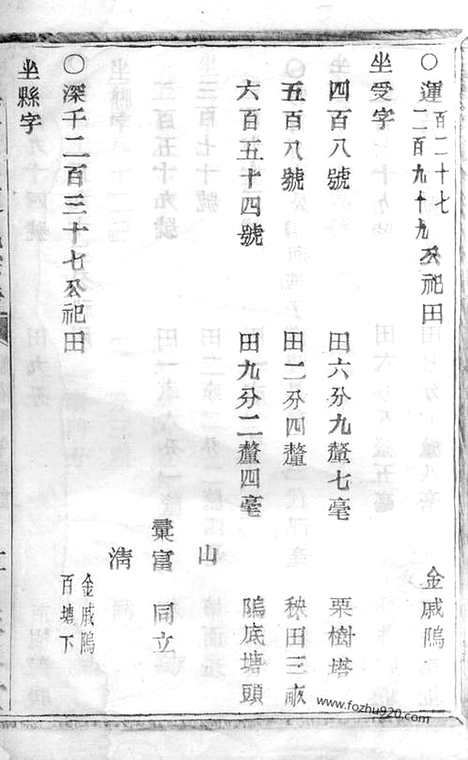 ○運百二十七 二百九十九公祀田 金戚隝
坐受字
四百八號 田六分九釐七毫 栗樹塔
五百八號 田二分四釐 秧田三畝
六百五十四號 田九分二釐四毫 隝底塘頭
山
彙富 同立
清
○深千二百三十七公祀田 金戚隝 百塘下
坐縣字
www.fozhu920.com